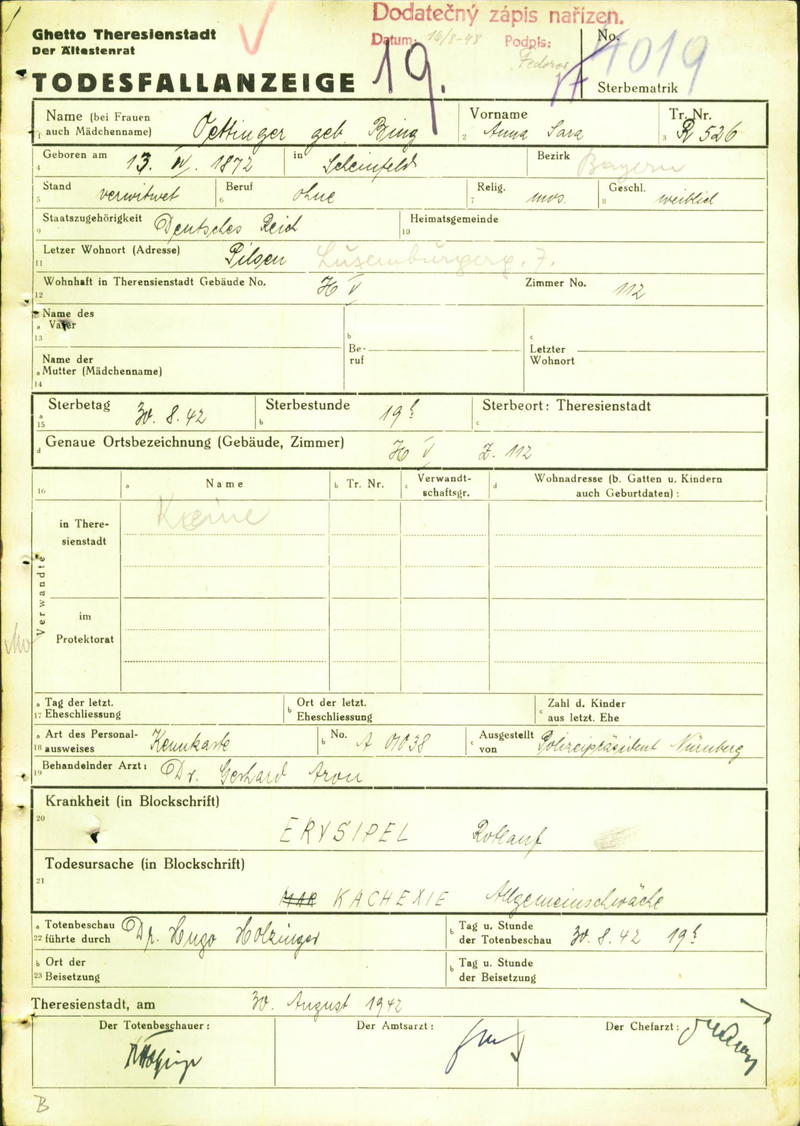 Ghetto Theresienstadt
Der Ältestenrat
Dodatečný zápis nařízen.
Datum: 16/8-48 Podpis:
19.
No. 4019
Sterbematrik
TODESFALLANZEIGE
Name (bei Frauen auch Mädchenname) Oettinger geb. Bing
1
Vorname Anna Sara
2
Tr. Nr. R 526
3
Geboren am 13. IV. 1872
4
in Scheinfeld
Bezirk Bayern
Stand verwitwet
5
Beruf ohne
6
Relig. mos.
7
Geschl. weiblich
8
Staatszugehörigkeit Deutsches Reich
9
Heimatsgemeinde
10
Letzer Wohnort (Adresse) Pilsen Luxemburgerg. 7.
11
Wohnhaft in Therensienstadt Gebäude No. H V
12
Zimmer No. 112
Name des
a Vater
13
b Be-
ruf
c Letzter
Wohnort
Name der
a Mutter (Mädchenname)
14
Sterbetag 30. 8. 42
a 15
Sterbestunde 19h
b
Sterbeort: Theresienstadt
c
Genaue Ortsbezeichnung (Gebäude, Zimmer) H V Z. 112
d
16
a Name
b Tr. Nr.
c Verwandt-
schaftsgr.
d Wohnadresse (b. Gatten u. Kindern
auch Geburtdaten):
Verwandte
in There-
sienstadt
Keine
im
Protektorat
a Tag der letzt.
17 Eheschliessung
b Ort der letzt.
Eheschliessung
c Zahl d. Kinder
aus letzt. Ehe
a Art des Personal-
18 ausweises Kennkarte
b No. A 01038
c Ausgestellt
von Polizeipräsident Nürnberg
Behandelnder Arzt: Dr. Gerhard Aron
19
Krankheit (in Blockschrift)
20
ERYSIPEL Rotlauf
Todesursache (in Blockschrift)
21
KACHEXIE Allgemeinschwäche
a Totenbeschau
22 führte durch Dr. Hugo Holzinger
b Tag u. Stunde
der Totenbeschau 30. 8. 42 19h
a Ort der
23 Beisetzung
b Tag u. Stunde
der Beisetzung
Theresienstadt, am 30. August 1942
Der Totenbeschauer:
Der Amtsarzt:
Der Chefarzt:
B